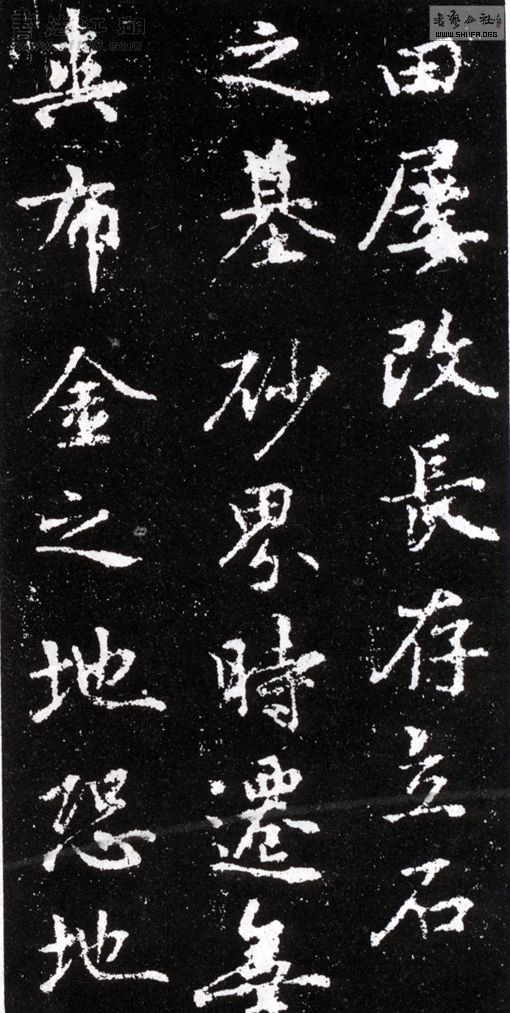 田屡改長存立石
之墓砂界時遷無
爽布金之地恐地
書法江湖
書藝公社
WWW.SHUFA.ORG